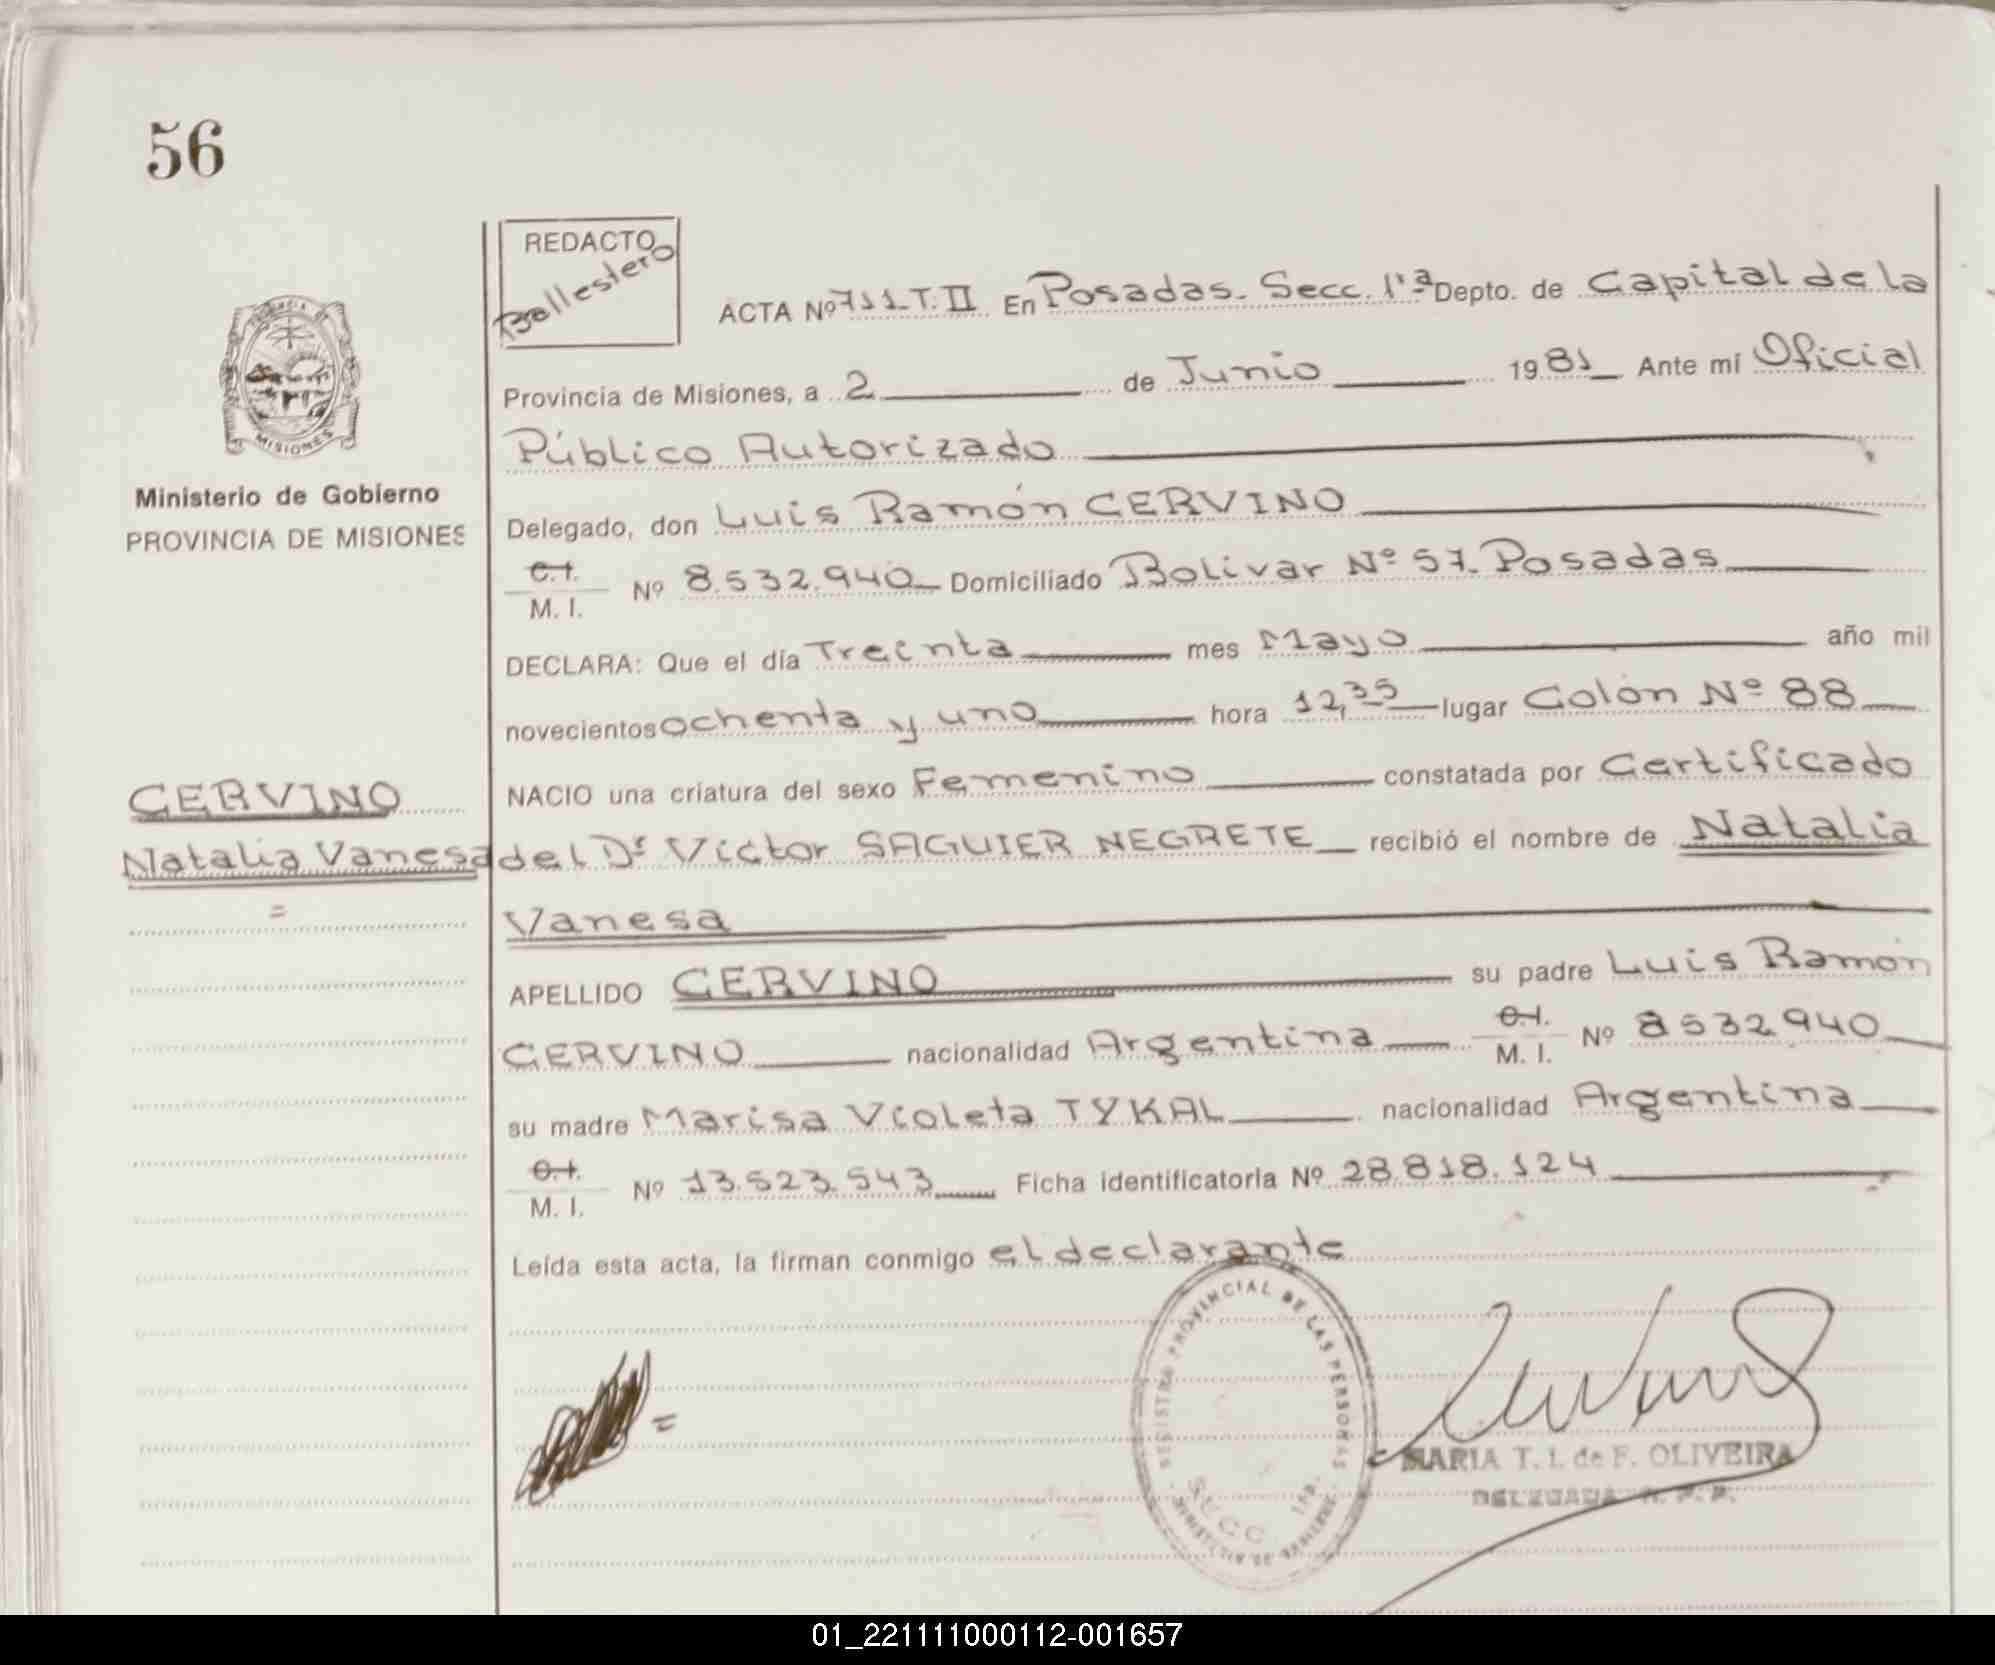 56
REDACTO
Ballestero
ACTA Nº 711 T. II En Posadas. Secc. 1ª Depto. de Capital de la
Provincia de Misiones, a 2 de Junio 1981 Ante mí Oficial
Público Autorizado
MISIONES
Ministerio de Gobierno
PROVINCIA DE MISIONES
Delegado, don Luis Ramón CERVINO
C.I. M. I. Nº 8.532.940 Domiciliado Bolivar Nº 57. Posadas
DECLARA: Que el día Treinta mes Mayo año mil
novecientos ochenta y uno hora 12,35 lugar Colón Nº 88
NACIO una criatura del sexo Femenino constatada por Certificado
CERVINO
Natalia Vanesa
=
del Dr Victor SAGUIER NEGRETE recibió el nombre de Natalia
Vanesa
APELLIDO CERVINO su padre Luis Ramón
CERVINO nacionalidad Argentina C.I. M. I. Nº 8532940
su madre Marisa Violeta TYKAL nacionalidad Argentina
C.I. M. I. Nº 13.523.543 Ficha identificatoria Nº 28.818.124
Leída esta acta, la firman conmigo el declarante
=
REGISTRO PROVINCIAL DE LAS PERSONAS
SECC. 1ra.
MINISTERIO DE GOBIERNO
MARIA T. I. de F. OLIVEIRA
DELEGADA R. P. P.
01_221111000112-001657